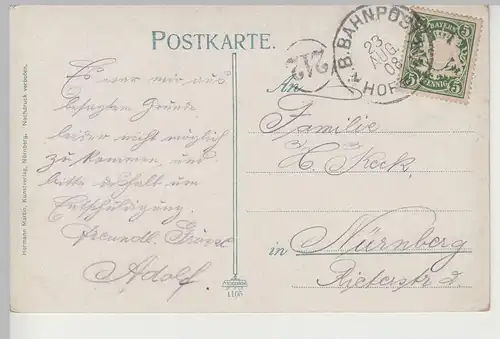 POSTKARTE.
Es war mir aus
besagtem Grunde
leider nicht möglich
zu kommen, und
bitte deßhalb um
Entschuldigung.
Freundl. Grüsse
Adolf.
Hermann Martin, Kunstverlag, Nürnberg. Nachdruck verboten.
1105
242
BAHNPOST
23
AUG.
08
HOF
BAYERN
5 PFENNIG 5
An
Familie
H. Keck,
in Nürnberg
Rieterstr 2.